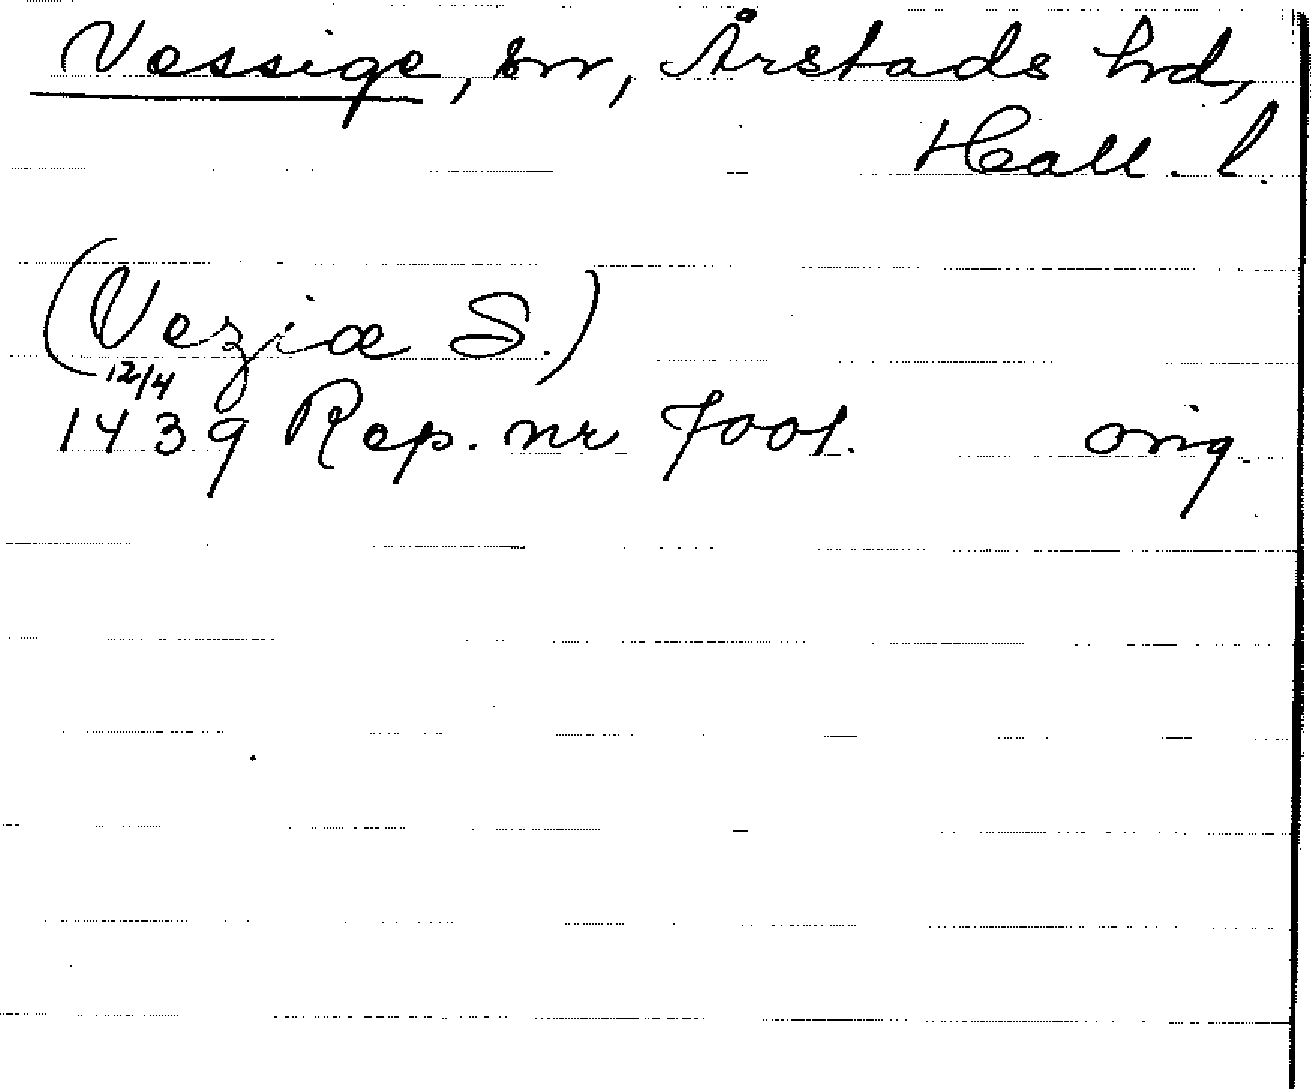 Vessige, sn, Årstads hd,
Hall. l.
(Veziæ S.)
12/4
1439 Rep. nr 7001. orig.